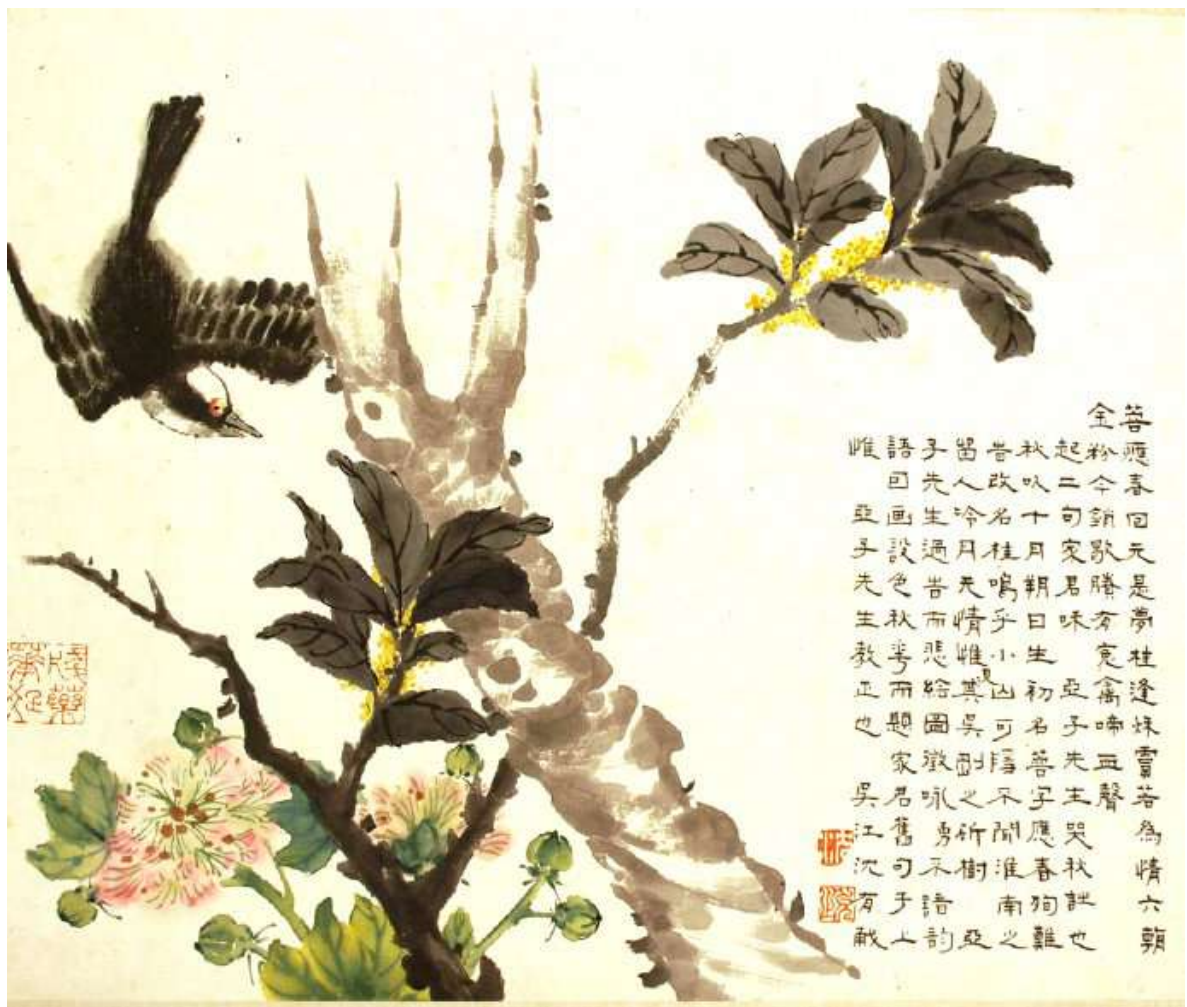 菩應春回元是夢桂逢若為情六朝
金粉今銷歇賸有冤禽啼血聲
起二句家君 亞子先生哭秋也
秋以十月朔日生初名菩字應春狥難
旹改名桂嗚乎小山可隱不聞淮南之
留人冷月无情惟見其吳剛之斫樹 亞
子先生過而悲繪圖徵咏不語韵
語回画設色秋華而題家君舊句于上
惟 亞子先生教正也 吳江沈有